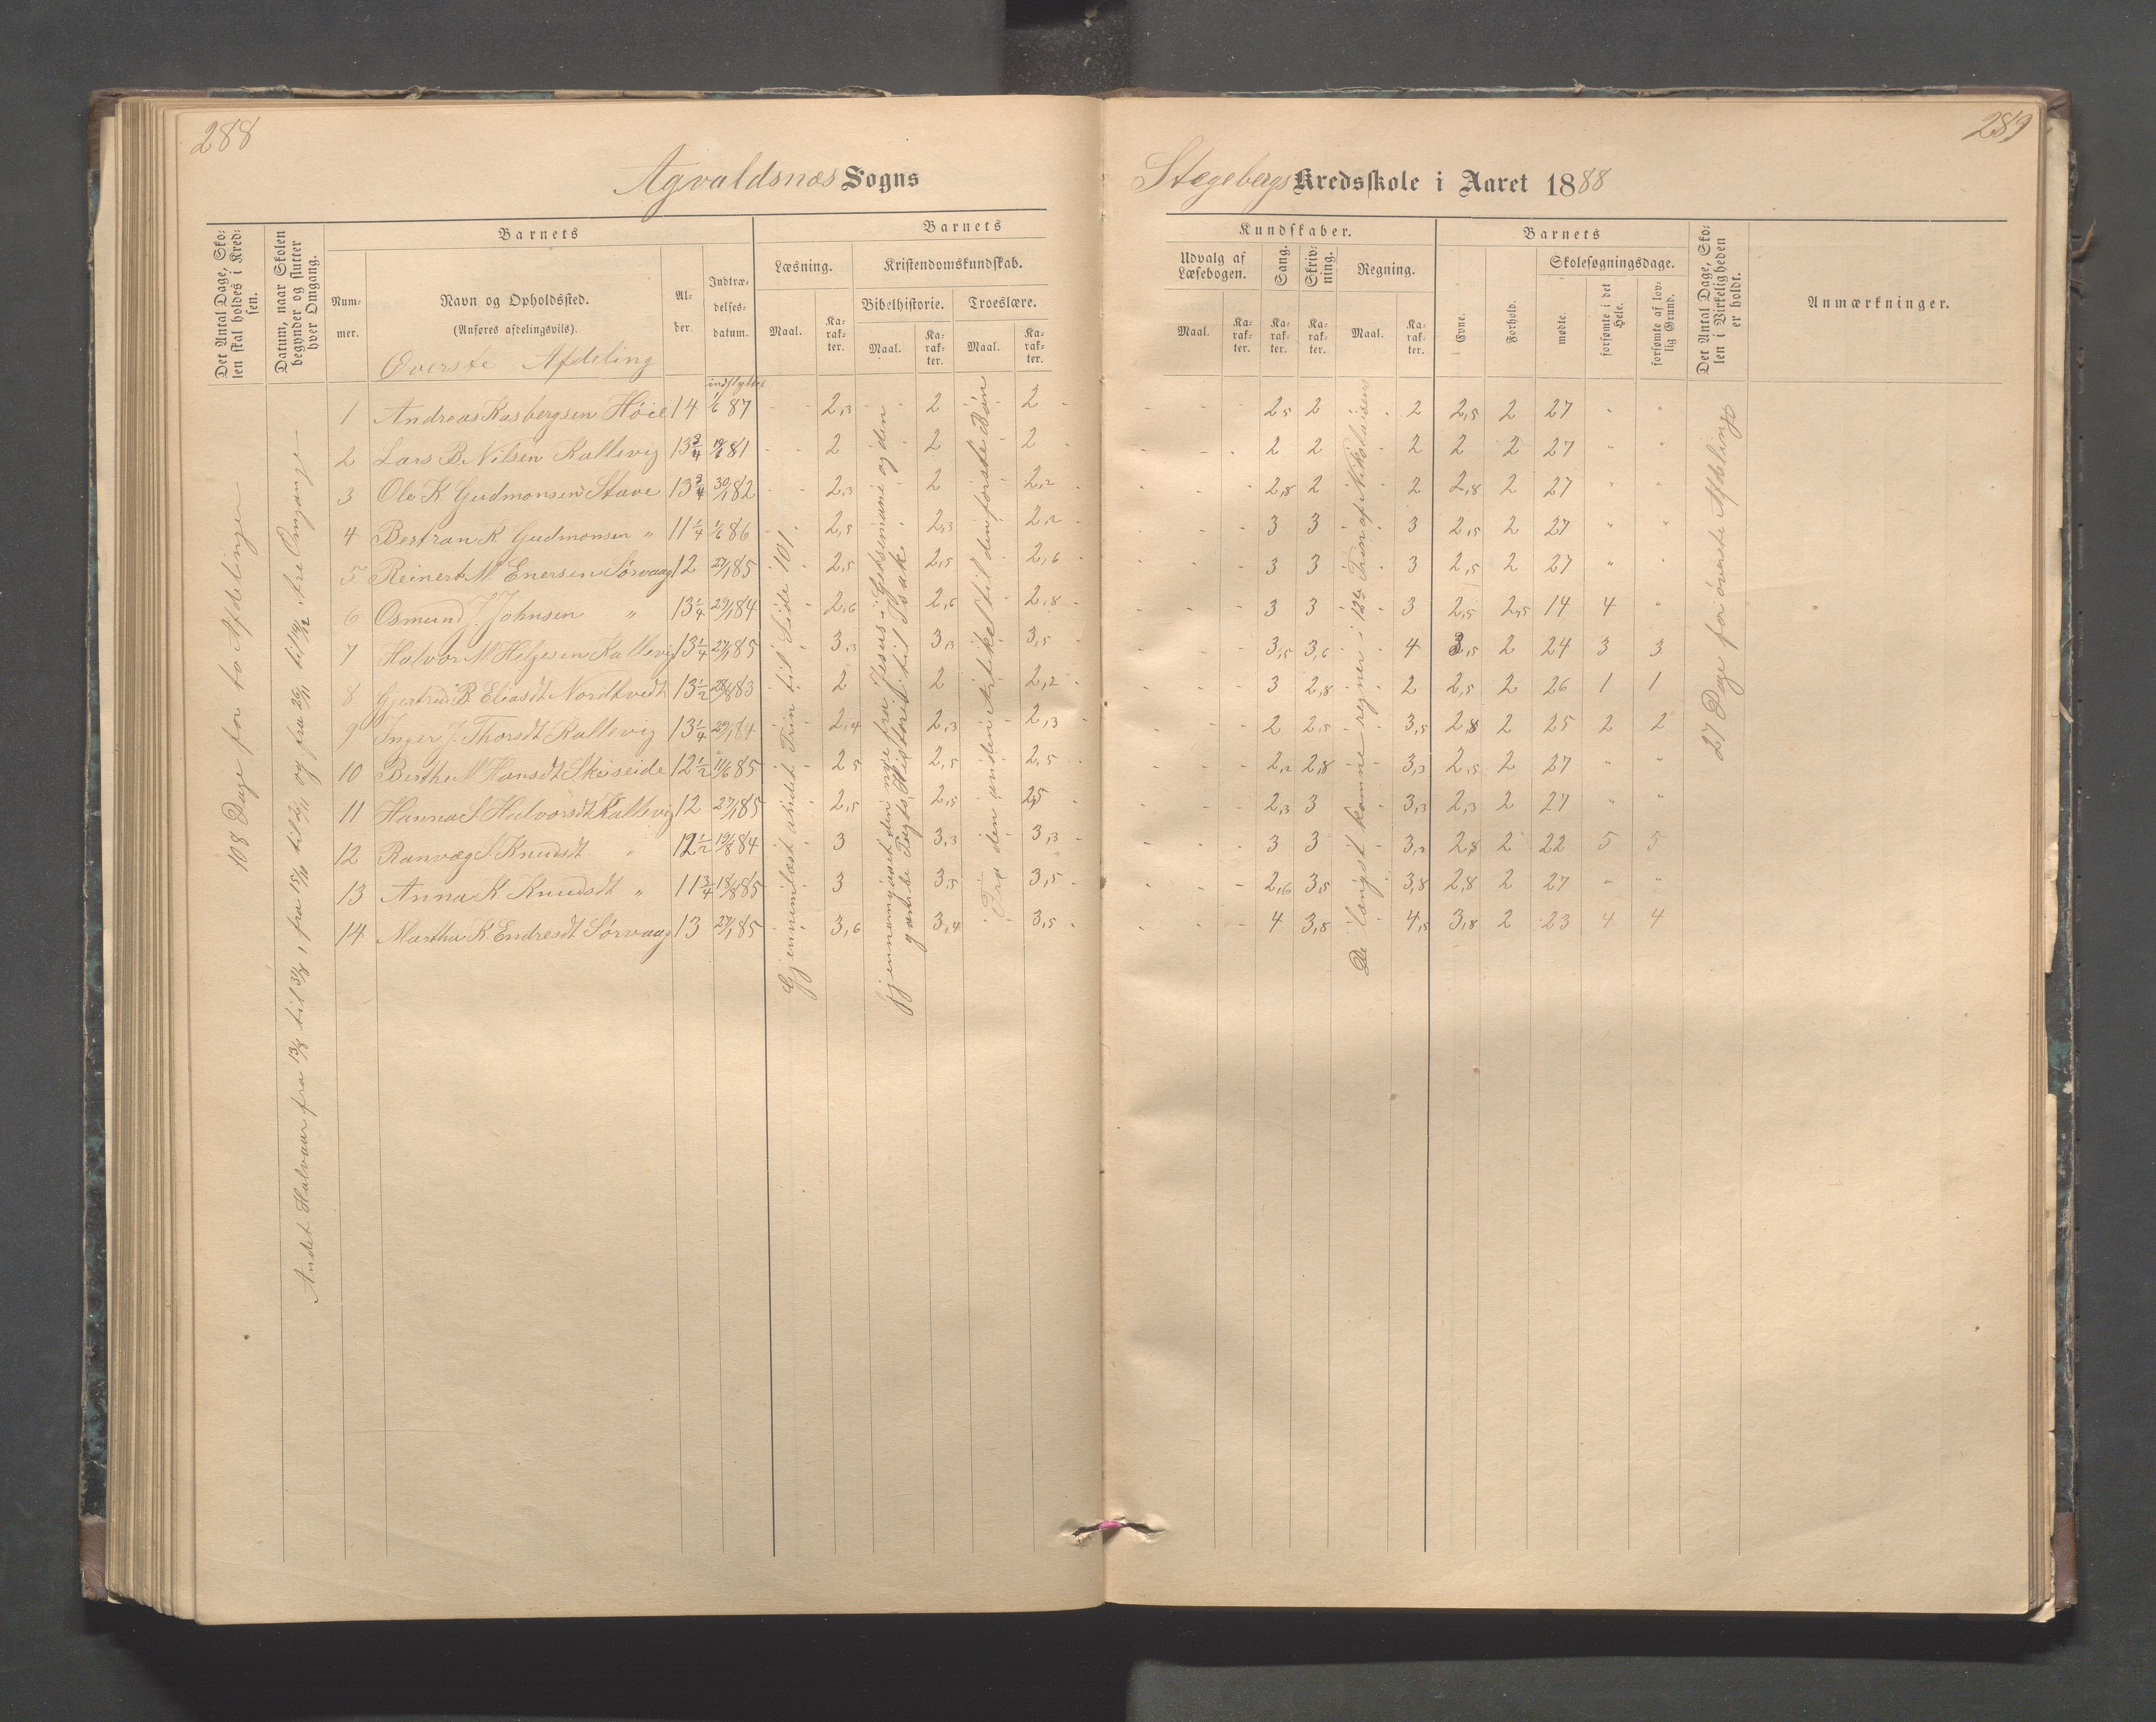 288
289
Agvaldsnæs Sogns
Stegebergs Kredsskole i Aaret 1888
Det Antal Dage, Sko-
len skal holdes i Kred-
sen.
Datum, naar Skolen
begynder og slutter
hver Omgang.
Barnets
Num-
mer.
Navn og Opholdssted.
(Anføres afdelingsvis).
Al-
der.
Indtræ-
delses-
datum.
Barnets
Læsning.
Maal.
Ka-
rak-
ter.
Kristendomskundskab.
Bibelhistorie.
Maal.
Ka-
rak-
ter.
Troeslære.
Maal.
Ka-
rak-
ter.
Kundskaber.
Udvalg af
Læsebogen.
Maal.
Ka-
rak-
ter.
Sang.
Ka-
rak-
ter.
Skriv-
ning.
Ka-
rak-
ter.
Regning.
Maal.
Ka-
rak-
ter.
Barnets
Evne.
Forhold.
Skolesøgningsdage.
mødte.
forsømte i det
Hele.
forsømte af lov-
lig Grund.
Det Antal Dage, Sko-
len i Virkeligheden
er holdt.
Anmærkninger.
Øverste Afdeling
108 Dage for to Afdelinger
Andet Halvaar fra 13/8 til 31/8, fra 15/10 til 3/11 og fra 26/11 til 14/12. tre Omgange
Gjennemlæst andet Trin til Side 101.
Gjennemgaaet den nye fra Jesus i Getsemane og den
gamle Pagts Historie til Isak
Tro den anden Artikel til den første Bøn
De længst komne regner i 12te Trin af Nikolaisens
27 Dage for øverste Afdeling
indflyttet
1 Andreas Rasbergsen Høie 14 1/6 87 2,3 2 2 2,5 2 2 2,5 2 27 " "
2 Lars B. Nilsen Kallevig 13 3/4 19/4 81 2 2 2 2 2 2 2 2 27 " "
3 Ole K Gudmonsen Stave 13 3/4 30/1 82 2,3 2 2,2 2,8 2 2 2,8 2 27 " "
4 Bertran K. Gudmonsen " 11 1/4 1/6 86 2,5 2,3 2,2 3 3 3 2,5 2 27 " "
5 Reinert M. Enersen Sørvaag 12 27/1 85 2,5 2,5 2,6 3 3 3 2,5 2 27 " "
6 Osmund J. Johnsen " 13 1/4 29/1 84 2,6 2,6 2,8 3 3 3 2,5 2,5 14 4 "
7 Halvor M Helgesen Kallevig 13 1/4 27/1 85 3,3 3,3 3,5 3,5 3,6 4 3,5 2 24 3 3
8 Gjertrud B. Eliasdt Nordtvedt 13 1/2 28/8 83 2 2 2,2 3 2,8 2 2,5 2 26 1 1
9 Inger J. Thorsdt Kallevig 13 1/4 29/1 84 2,4 2,3 2,3 2 2,5 3,5 2,8 2 25 2 2
10 Berthe M Hansdt Skeiseide 12 1/2 11/6 85 2,5 2,5 2,5 2,2 2,8 3,3 2,5 2 27 " "
11 Hanna S. Halvorsdt Kallevig 12 27/1 85 2,5 2,5 2,5 2,3 3 3,3 2,3 2 27 " "
12 Ranvæg S. Knudsdt " 12 1/2 19/8 84 3 3,3 3,3 3 3 3,2 2,8 2 22 5 5
13 Anna K. Knudsdt " 11 3/4 18/8 85 3 3,3 3,5 2,6 3,5 3,8 2,8 2 27 " "
14 Martha K. Endresdt Sørvaag 13 27/1 85 3,6 3,4 3,5 4 3,8 4,5 3,8 2 23 4 4